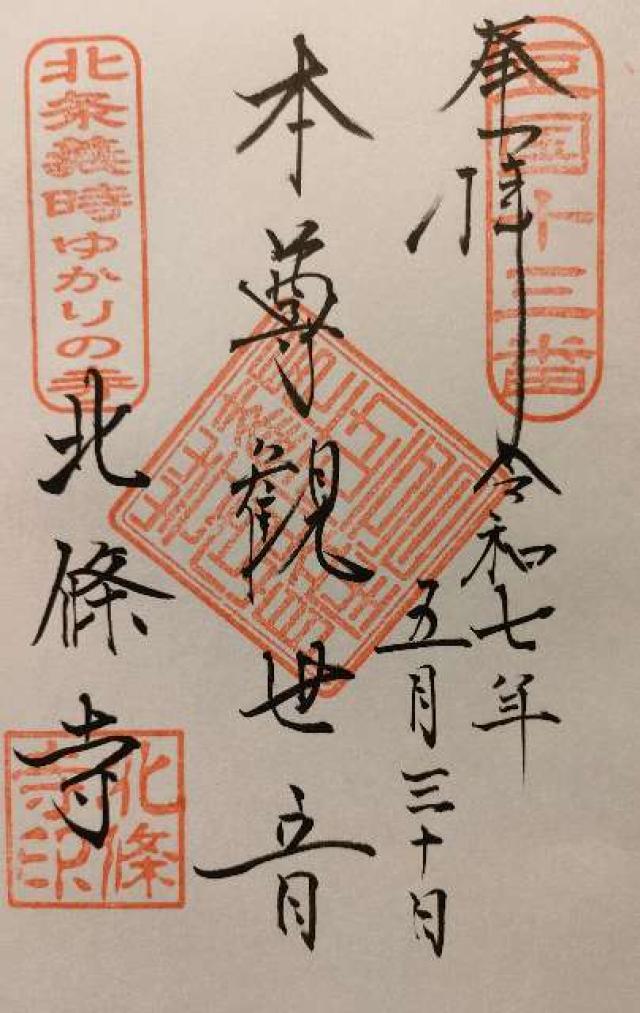 奉拝
豆国十三番
令和七年
五月三十日
本尊観世音
北条義時ゆかりの寺
北條寺
北條寺印